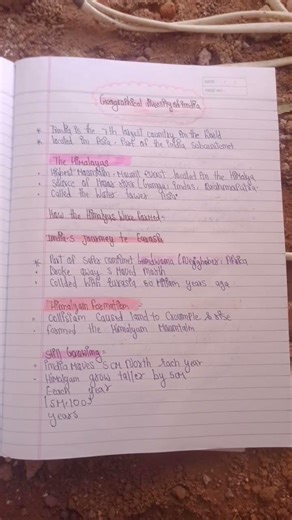 Geographical diversity of India
* India is the 7th largest country in the World
* located in Asia. Part of the India subcontinet
The Himalayas
• Highest Mountain: Mount located in the Himalya
• Source of Major
• Called the Water tower
How the Himalyas Were formed
India's journey to Eurasia
* Part of super continent Gondwana
• Broke away & Moved North
• Collided with Eurasia 50 Million years ago
Himalyan formation
• Collision Caused land to Crumple & rise
• formed the Himalyan Mountain
Still Growing
• India Moves 5CM North each year
• Himalyan grow taller by 5CM
Each year
years